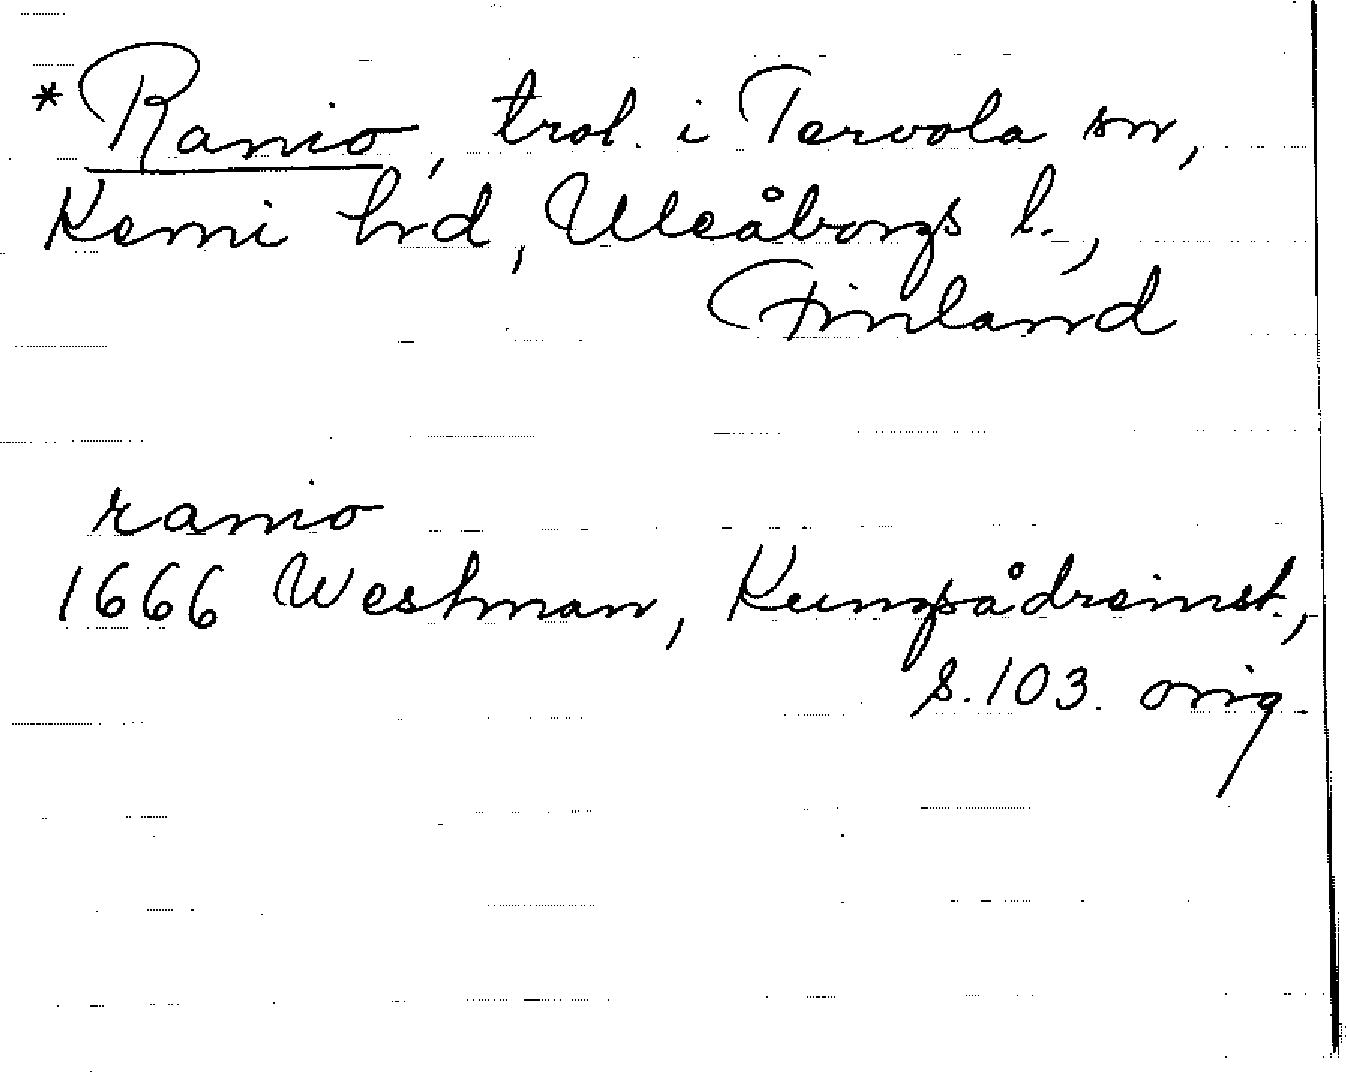 * Ranio, trol. i Tervola sn,
Kemi hrd, Uleåborgs l.,
Finland
ranio
1666 Westman, Kungsådreinst.,
s. 103. orig.